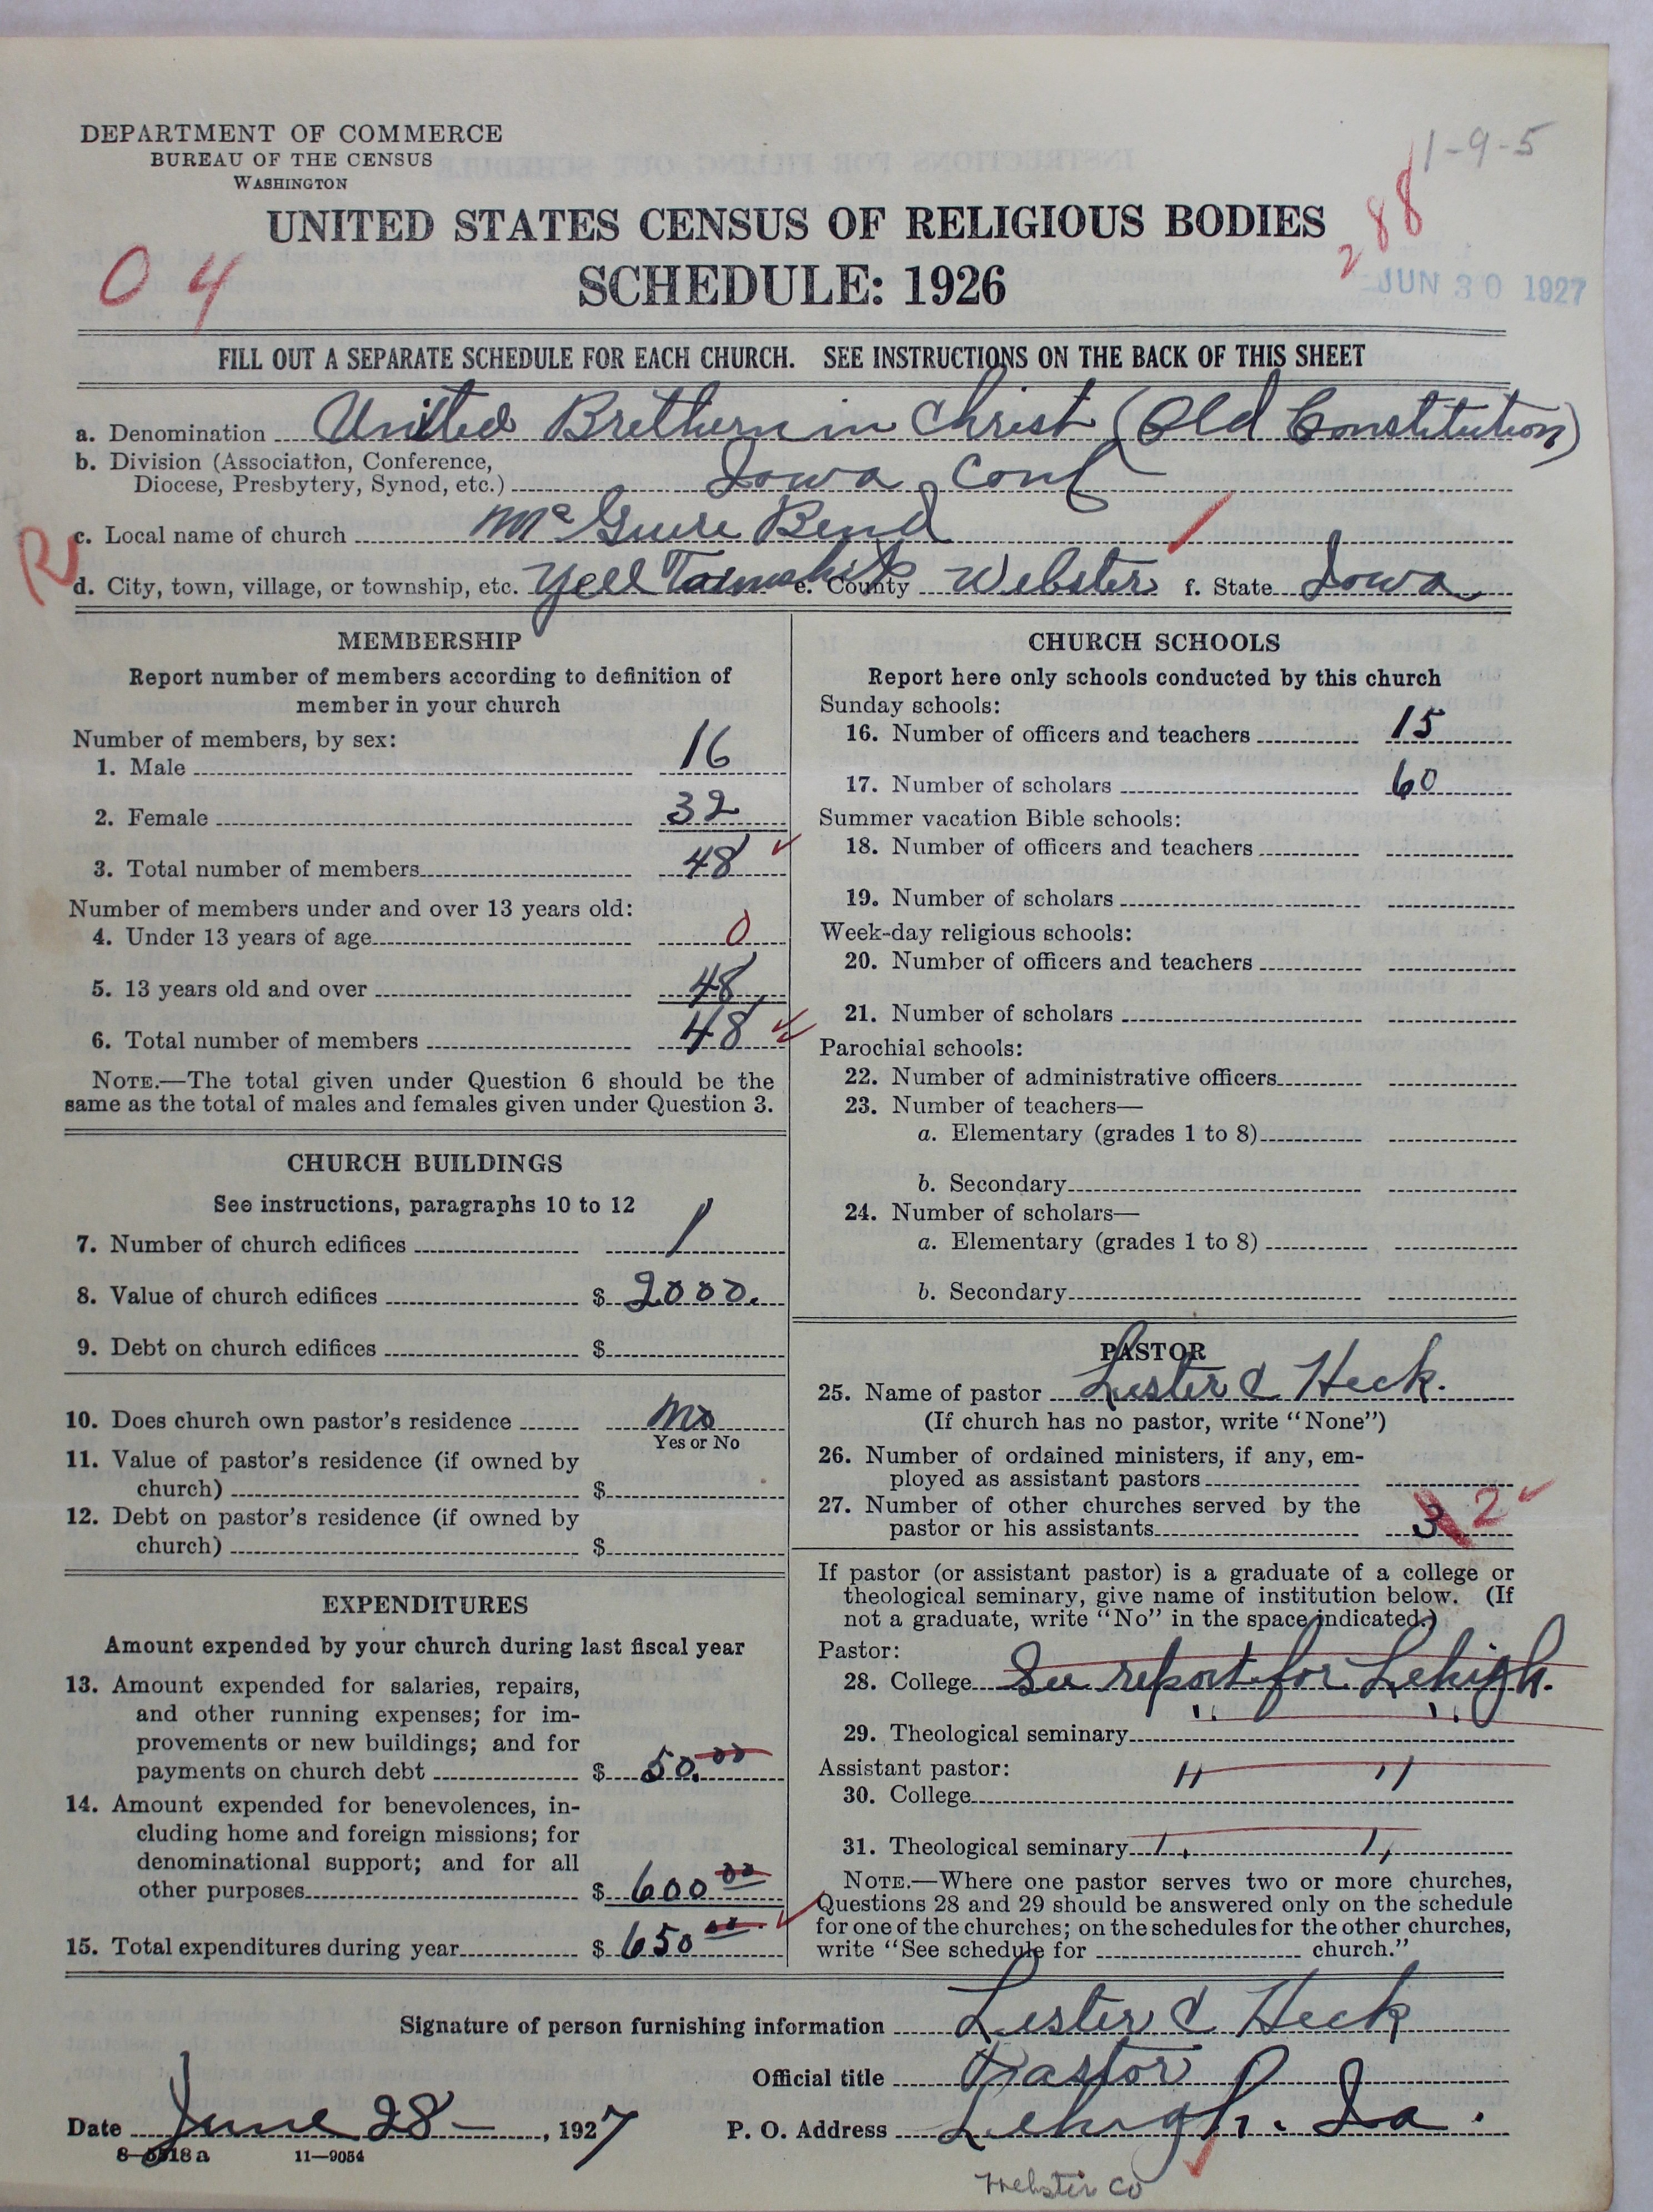 DEPARTMENT OF COMMERCE
BUREAU OF THE CENSUS
WASHINGTON
1-9-5
288
UNITED STATES CENSUS OF RELIGIOUS BODIES
04
SCHEDULE: 1926
JUN 30 1927
FILL OUT A SEPARATE SCHEDULE FOR EACH CHURCH. SEE INSTRUCTIONS ON THE BACK OF THIS SHEET
a. Denomination United Brethern in Christ (Old Constitution)
b. Division (Association, Conference,
Diocese, Presbytery, Synod, etc.) Iowa Conf
R
c. Local name of church McGuire Bend
d. City, town, village, or township, etc. Yell Township e. County Webster f. State Iowa
MEMBERSHIP
Report number of members according to definition of
member in your church
Number of members, by sex:
1. Male 16
2. Female 32
3. Total number of members 48
Number of members under and over 13 years old:
4. Under 13 years of age 0
5. 13 years old and over 48
6. Total number of members 48
NOTE.—The total given under Question 6 should be the
same as the total of males and females given under Question 3.
CHURCH BUILDINGS
See instructions, paragraphs 10 to 12
7. Number of church edifices 1
8. Value of church edifices $ 2000.
9. Debt on church edifices $
10. Does church own pastor's residence no
Yes or No
11. Value of pastor's residence (if owned by
church) $
12. Debt on pastor's residence (if owned by
church) $
EXPENDITURES
Amount expended by your church during last fiscal year
13. Amount expended for salaries, repairs,
and other running expenses; for im-
provements or new buildings; and for
payments on church debt $ 50.00
14. Amount expended for benevolences, in-
cluding home and foreign missions; for
denominational support; and for all
other purposes $ 600 00
15. Total expenditures during year $ 650 00
CHURCH SCHOOLS
Report here only schools conducted by this church
Sunday schools:
16. Number of officers and teachers 15
17. Number of scholars 60
Summer vacation Bible schools:
18. Number of officers and teachers
19. Number of scholars
Week-day religious schools:
20. Number of officers and teachers
21. Number of scholars
Parochial schools:
22. Number of administrative officers
23. Number of teachers—
a. Elementary (grades 1 to 8)
b. Secondary
24. Number of scholars—
a. Elementary (grades 1 to 8)
b. Secondary
PASTOR
25. Name of pastor Lester C Heck.
(If church has no pastor, write "None")
26. Number of ordained ministers, if any, em-
ployed as assistant pastors
27. Number of other churches served by the
pastor or his assistants 3 2
If pastor (or assistant pastor) is a graduate of a college or
theological seminary, give name of institution below. (If
not a graduate, write "No" in the space indicated.)
Pastor:
28. College See report for Lehigh.
29. Theological seminary " "
Assistant pastor:
30. College " "
31. Theological seminary " "
NOTE.—Where one pastor serves two or more churches,
Questions 28 and 29 should be answered only on the schedule
for one of the churches; on the schedules for the other churches,
write "See schedule for church."
Signature of person furnishing information Lester C Heck
Official title Pastor
Date June 28 - , 1927 P. O. Address Lehigh. Ia.
8-5518a 11-9054
Webster Co